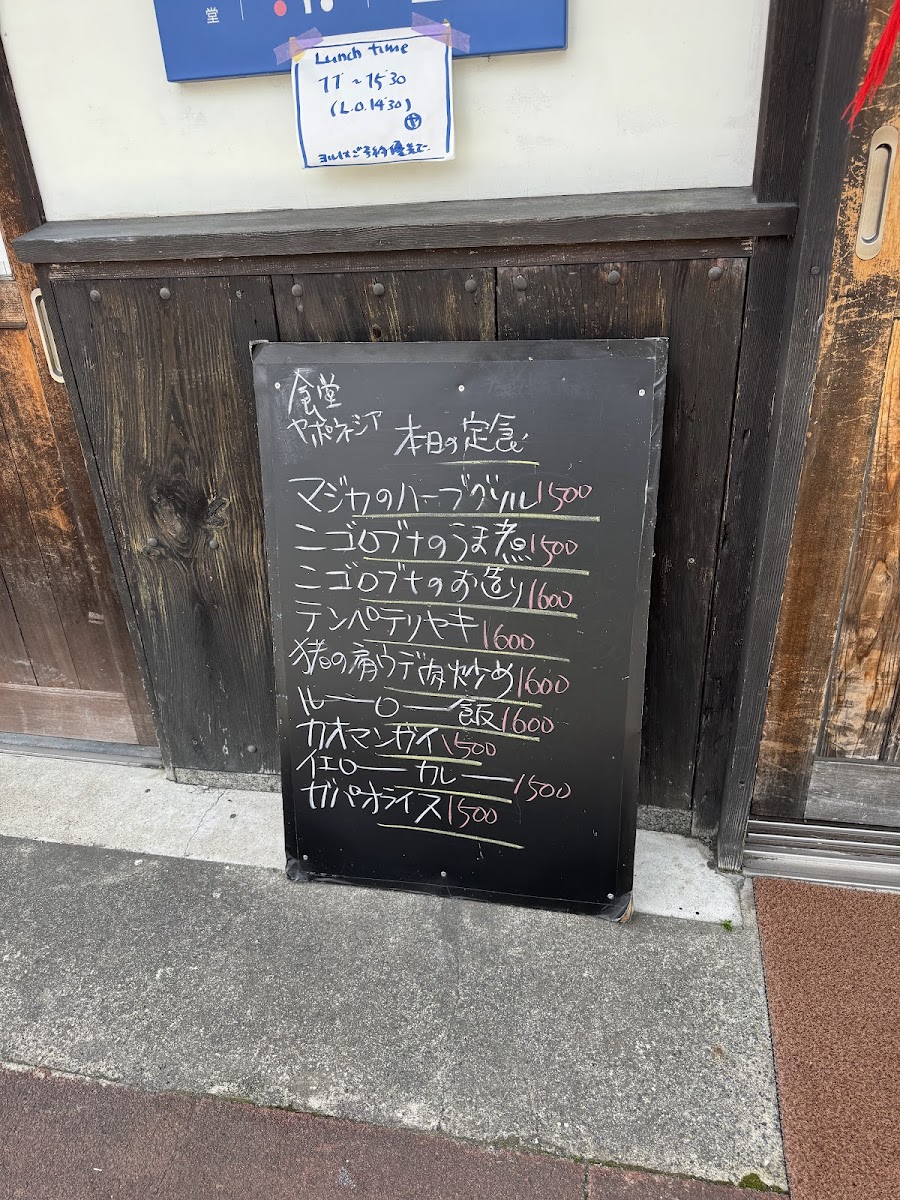 堂
Lunch time
11~15'30
(L.O.14'30)
ヨルはご予約優先で
食堂
ヤポネシア
本日の定食
マジカのハーブグリル1500
ニゴロブナのうま煮1500
ニゴロブナのお造り1600
テンペテリヤキ1600
猪の肩ウデ肉炒め1600
ルーロー飯1600
カオマンガイ1500
イエローカレー1500
ガパオライス1500